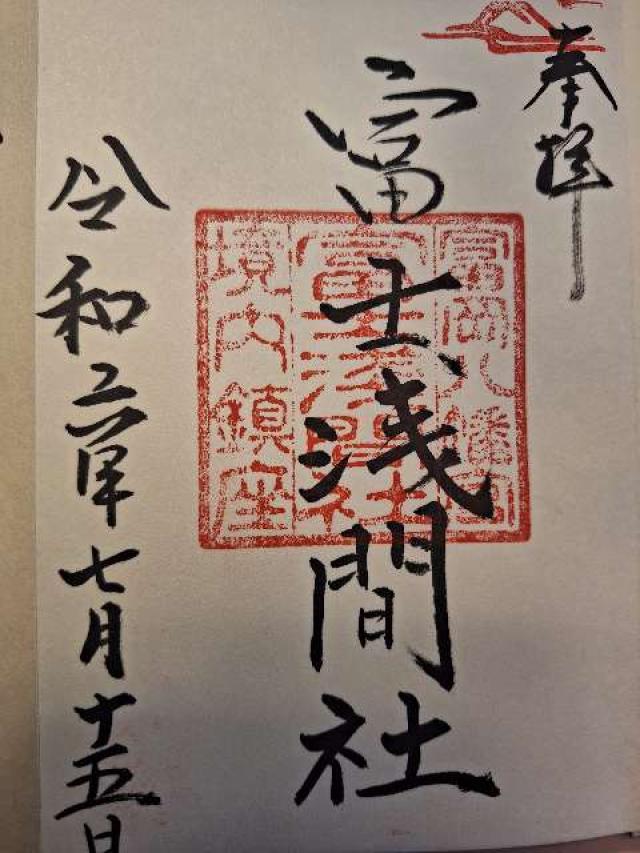 奉拝
富士浅間社
令和六年七月十五日
富岡八幡宮
富士浅間社
境内鎮座